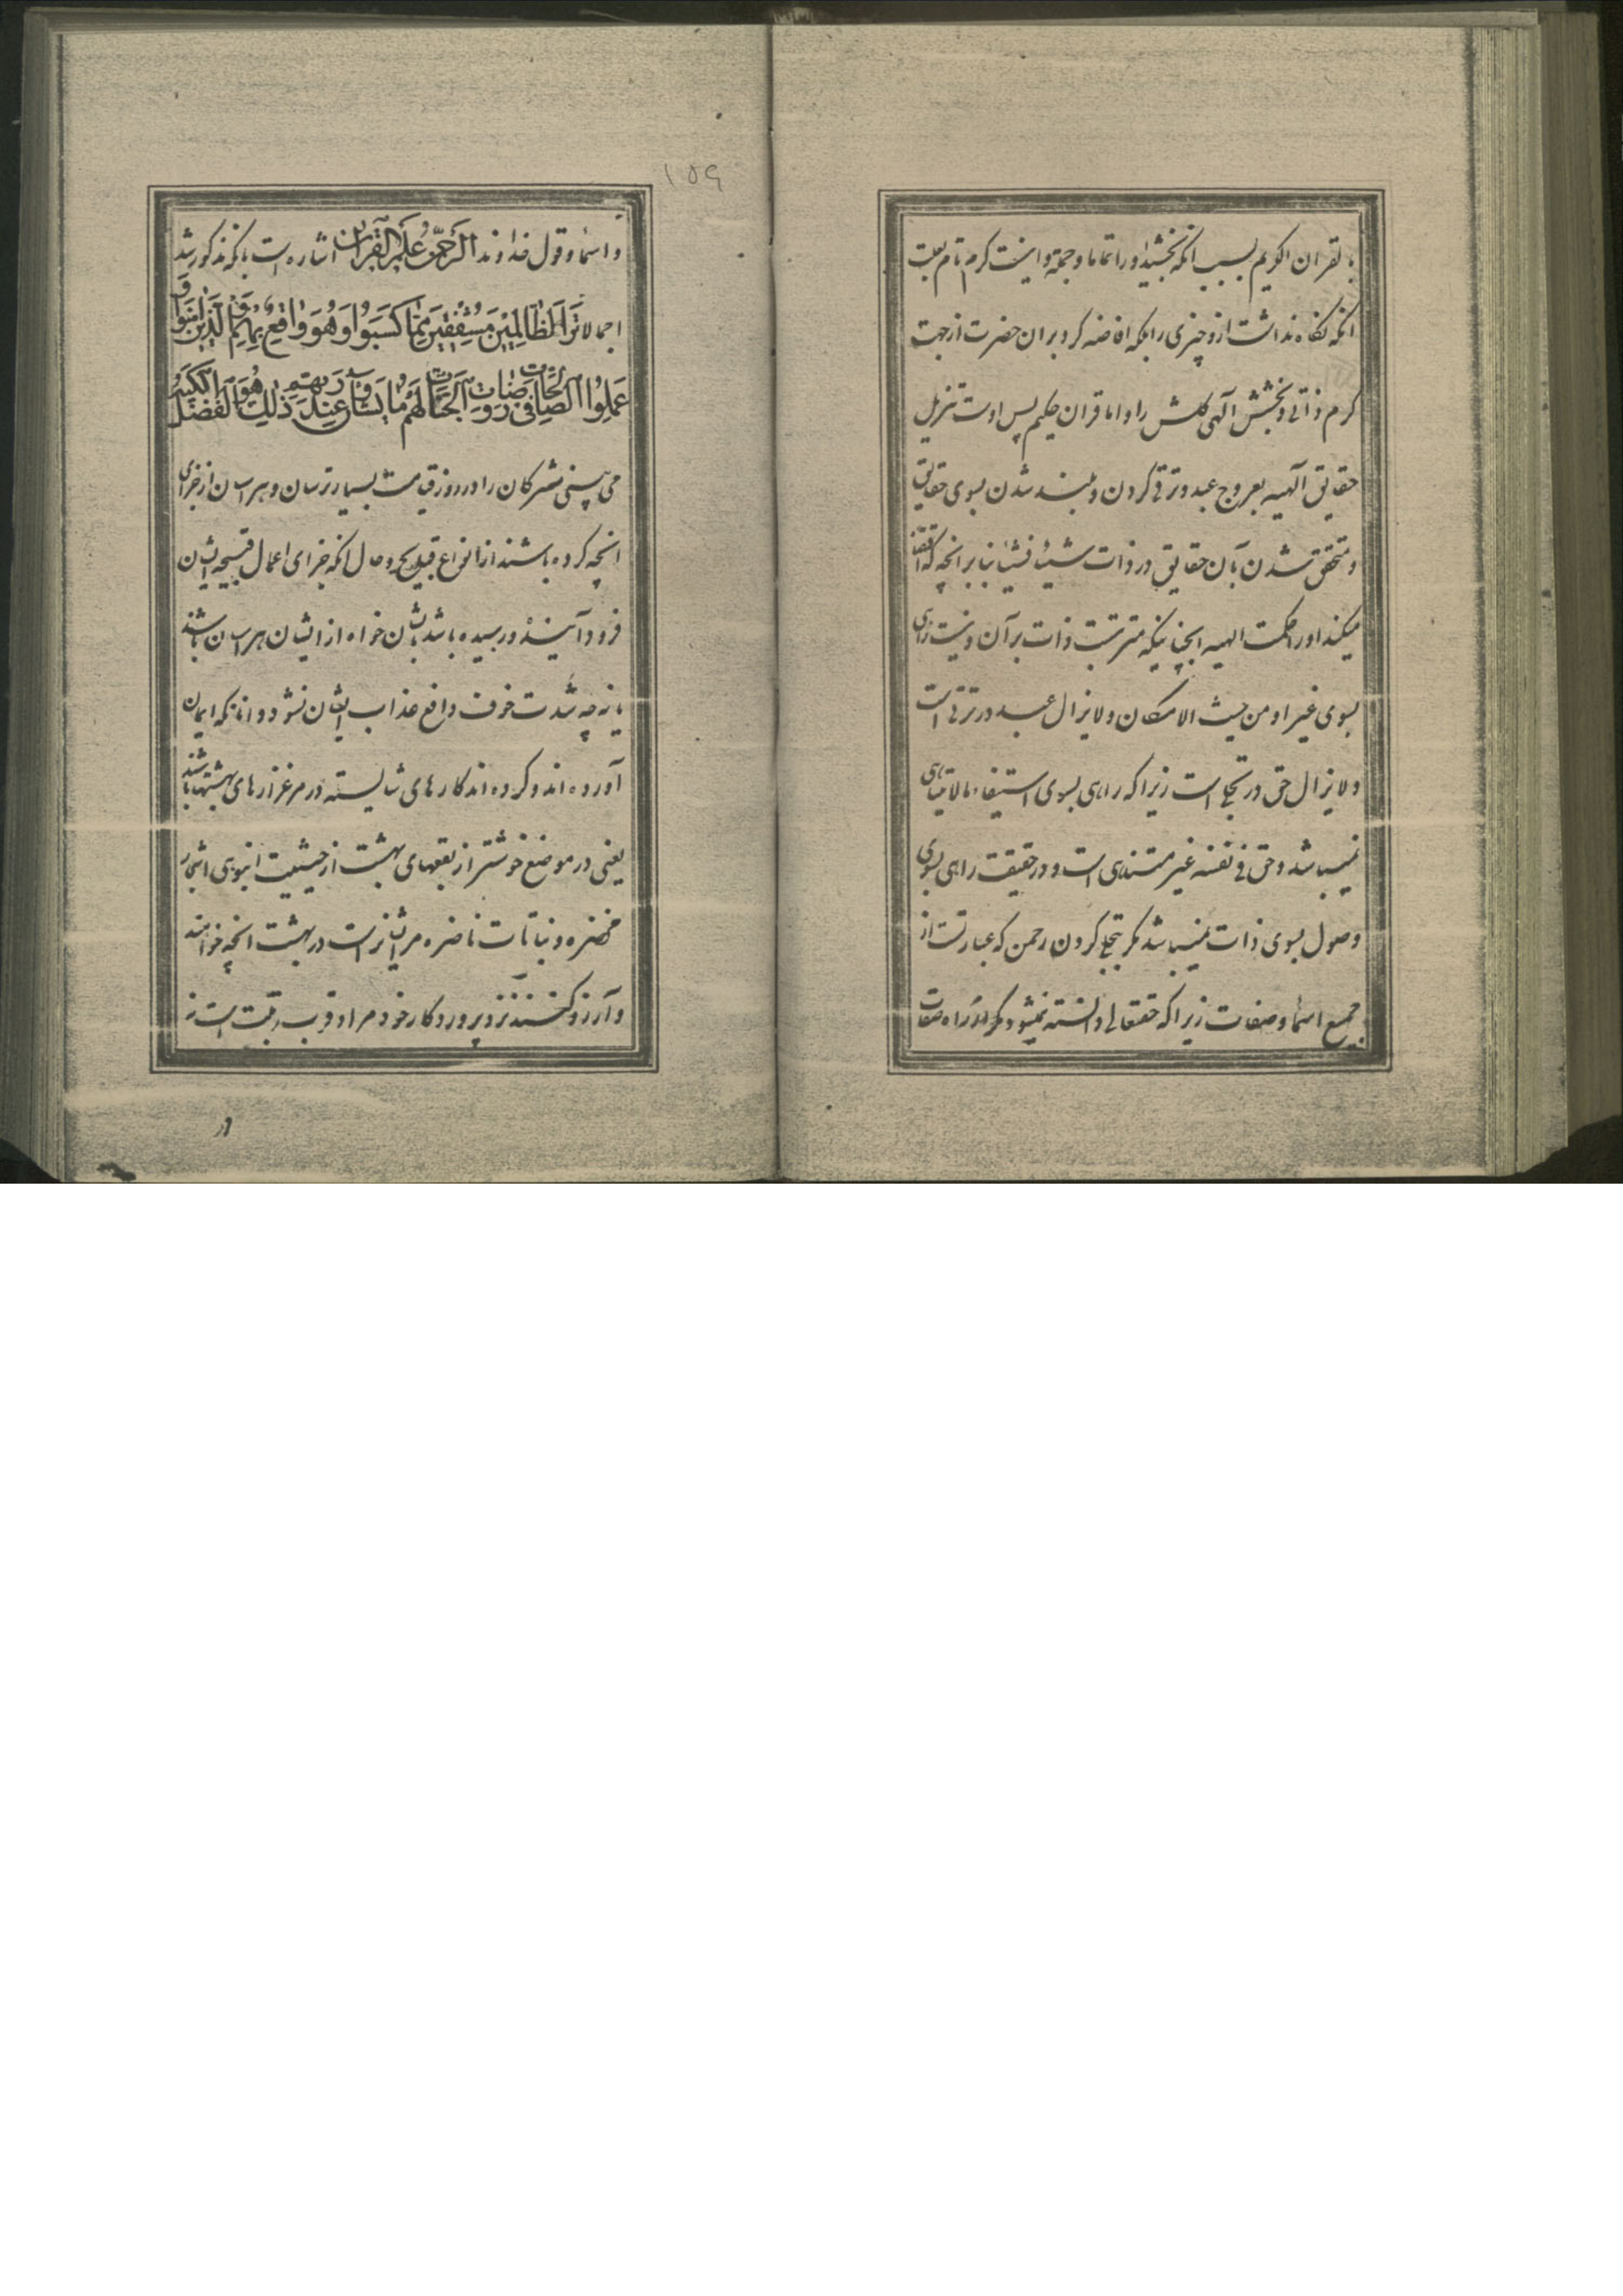 بالقران الکریم بسبب انکه بخشید او را تماما و جمیع و اینست کرم تام بعلت
انکه نگاه نداشت ازو چیزی را بلکه افاضه کرد بران حضرت از جهت
کرم ذاتی و بخشش الهی کلش را و اما قران حکیم پس اوست تنزیل
حقایق الهیه بعروج عبد و ترقی کردن و بلند شدن بسوی حقایق
و متحقق شدن بآن حقایق در ذات شیئا فشیئا بنابر انچه که اقتضا
میکند او را حکمت الهیه انچنانیکه مترتبست ذات بر آن و نیست راهی
بسوی غیر او من حیث الامکان و لایزال عبد در ترقی است
و لایزال حق در تجلی است زیرا که راهی بسوی استیفاء مالایتناهی
نمیباشد و حق فی نفسه غیر متناهی است و در حقیقت راهی بسوی
وصول بسوی ذات نمیباشد مگر بتجلی کردن رحمن که عبارتست از
جمیع اسما و صفات زیرا که حقتعالی دانسته نمیشود مگر از راه صفات
۱۵۹
و اسما و قول خداوند الرحمن علم القران اشاره است بانکه مذکور شد
اجمالا تَرَى الظَّالِمِينَ مُشْفِقِينَ مِمَّا كَسَبُوا وَهُوَ وَاقِعٌ بِهِمْ وَالَّذِينَ آمَنُوا وَ
عَمِلُوا الصَّالِحَاتِ فِي رَوْضَاتِ الْجَنَّاتِ لَهُمْ مَا يَشَاؤُنَ عِنْدَ رَبِّهِمْ ذَلِكَ هُوَ الْفَضْلُ الْكَبِيرُ
می بینی مشرکان را در روز قیامت بسیار ترسان و هراسان از جزای
انچه کرده باشند از انواع قبایح و حال انکه جزای اعمال قبیحه ایشان
فرود آینده و رسیده باشد بایشان خواه از ایشان هراسان باشند
یا نه چه شدت خوف دافع عذاب ایشان نشود و انانکه ایمان
آورده اند و کرده اند کارهای شایسته در مرغزارهای بهشتها باشند
یعنی در موضع خوشتر از بقعهای بهشت از حیثیت انبوهی اشجار
مخضره و نباتات ناضره مر ایشانراست در بهشت انچه خواهند
و آرزو کنند نزد پروردگار خود مراد قرب رتبت است نه
در